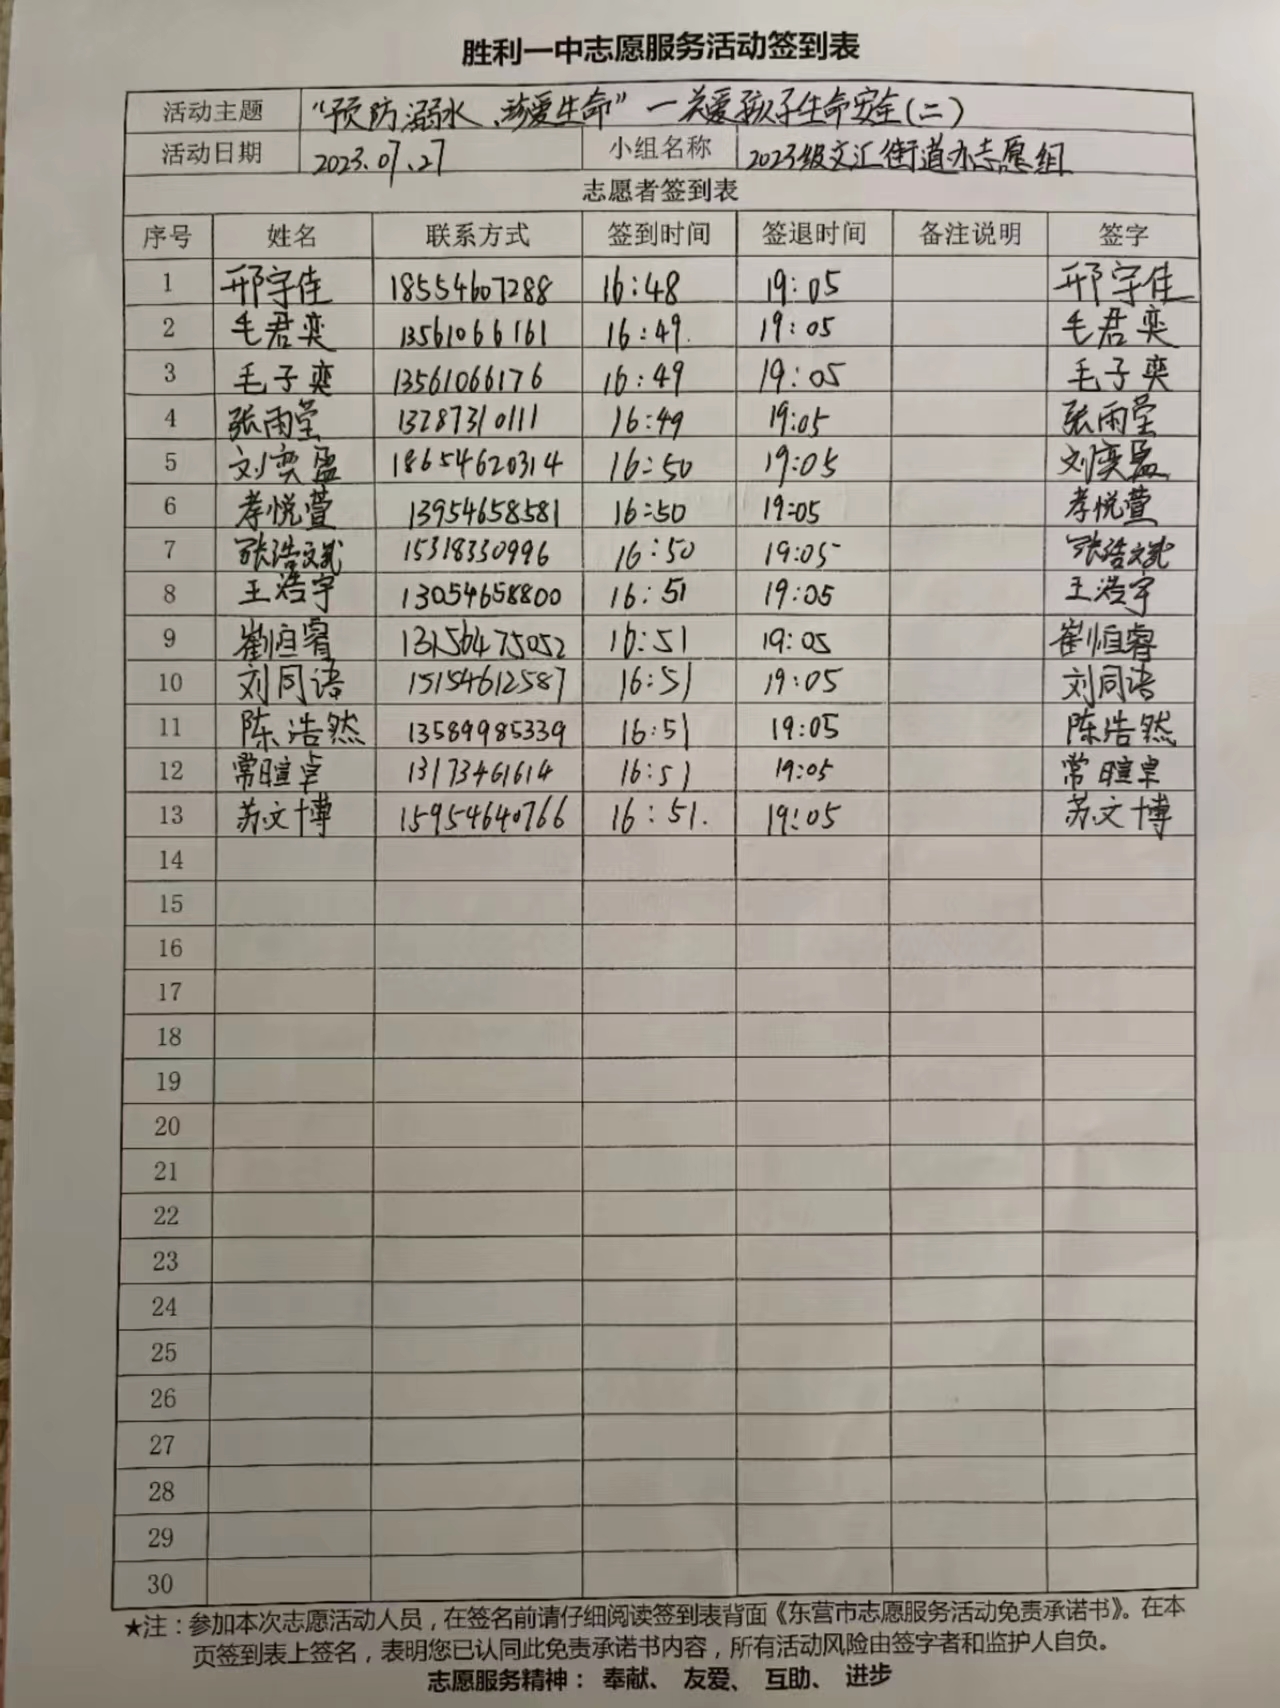 胜利一中志愿服务活动签到表
活动主题 “预防溺水、珍爱生命”一关爱孩子生命安全(二)
活动日期 2023.07.27 小组名称 2023级文汇街道办志愿组
志愿者签到表
序号 姓名 联系方式 签到时间 签退时间 备注说明 签字
1 邢宇佳 18554607288 16:48 19:05 邢宇佳
2 毛君奕 13561066161 16:49. 19:05 毛君奕
3 毛子奕 13561066176 16:49 19:05 毛子奕
4 张雨莹 13287310111 16:49 19:05 张雨莹
5 刘奕盈 18654620314 16:50 19:05 刘奕盈
6 孝悦萱 13954658581 16:50 19:05 孝悦萱
7 张浩斌 15318330996 16:50 19:05 张浩斌
8 王浩宇 13054658800 16:51 19:05 王浩宇
9 崔恒睿 13156475052 16:51 19:05 崔恒睿
10 刘同语 15154612587 16:51 19:05 刘同语
11 陈浩然 13589985339 16:51 19:05 陈浩然
12 常暄卓 13173461614 16:51 19:05 常暄卓
13 苏文博 15954640766 16:51. 19:05 苏文博
14
15
16
17
18
19
20
21
22
23
24
25
26
27
28
29
30
★注：参加本次志愿活动人员，在签名前请仔细阅读签到表背面《东营市志愿服务活动免责承诺书》。在本
页签到表上签名，表明您已认同此免责承诺书内容，所有活动风险由签字者和监护人自负。
志愿服务精神： 奉献、 友爱、 互助、 进步